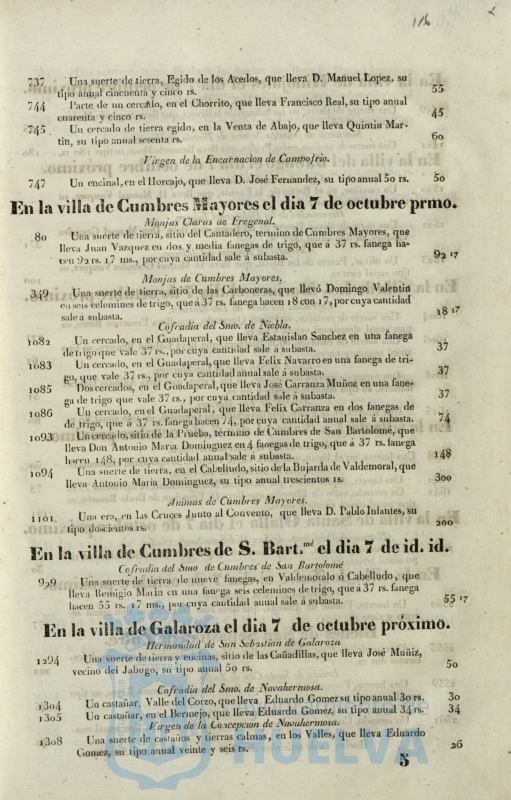 116
737 Una suerte de tierra, Egido de los Acedos, que lleva D. Manuel Lopez, su
tipo anual cincuenta y cinco rs. 55
744 Parte de un cercado, en el Chorrito, que lleva Francisco Real, su tipo anual
cuarenta y cinco rs. 45
745 Un cercado de tierra egido, en la Venta de Abajo, que lleva Quintin Mar-
tin, su tipo anual sesenta rs. 60
Virgen de la Encarnacion de Campofrio.
747 Un encinal, en el Horcajo, que lleva D. José Fernandez, su tipo anual 50 rs. 50
En la villa de Cumbres Mayores el dia 7 de octubre prmo.
Monjas Claras de Fregenal.
80 Una suerte de tierra, sitio del Cantadero, termino de Cumbres Mayores, que
lleva Juan Vazquez en dos y media fanegas de trigo, que á 37 rs. fanega ha-
cen 92 rs. 17 ms., por cuya cantidad sale á subasta. 92 17
Monjas de Cumbres Mayores.
349 Una suerte de tierra, sitio de las Carboneras, que llevó Domingo Valentin
en seis celemines de trigo, que á 37 rs. fanega hacen 18 con 17, por cuya cantidad
sale á subasta. 18 17
Cofradia del Smo. de Niebla.
1082 Un cercado, en el Guadaperal, que lleva Estanislao Sanchez en una fanega
de trigo que vale 37 rs., por cuya cantidad sale á subasta. 37
1083 Un cercado, en el Guadaperal, que lleva Felix Navarro en una fanega de tri-
go, que vale 37 rs., por cuya cantidad anual sale á subasta. 37
1085 Dos cercados, en el Guadaperal, que lleva José Carranza Muñoz en una fane-
ga de trigo que vale 37 rs., por cuya cantidad sale á subasta. 37
1086 Un cercado, en el Guadaperal, que lleva Felix Carranza en dos fanegas de
de trigo, que á 37 rs. fanega hacen 74, por cuya cantidad anual sale á subasta. 74
1093 Un cercado, sitio de la Prueba, término de Cumbres de San Bartolomé, que
lleva Don Antonio Maria Dominguez en 4 fanegas de trigo, que á 37 rs. fanega
hacen 148, por cuya cantidad anual sale á subasta. 148
1094 Una suerte de tierra, en el Cabelludo, sitio de la Bujarda de Valdemoral, que
lleva Antonio Maria Dominguez, su tipo anual trescientos rs. 300
Animas de Cumbres Mayores.
1101 Una era, en las Cruces Junto al Convento, que lleva D. Pablo Infantes, su
tipo doscientos rs. 200
En la villa de Cumbres de S. Bart.mé el dia 7 de id. id.
Cofradia del Smo de Cumbres de San Bartolomé
929 Una suerte de tierra de nueve fanegas, en Valdemoralo ó Cabelludo, que
lleva Remigio Marin en una fanega seis celemines de trigo, que á 37 rs. fanega
hacen 55 rs. 17 ms., por cuya cantidad anual sale á subasta. 55 17
En la villa de Galaroza el dia 7 de octubre próximo.
Hermandad de San Sebastian de Galaroza
1294 Una suerte de tierra y encinas, sitio de las Cañadillas, que lleva José Muñiz,
vecino del Jabugo, su tipo anual 50 rs. 50
Cofradia del Smo. de Navahermosa.
1304 Un castañar, Valle del Corzo, que lleva Eduardo Gomez su tipo anual 30 rs. 30
1305 Un castañar, en el Bermejo, que lleva Eduardo Gomez, su tipo anual 34 rs. 34
Virgen de la Concepcion de Navahermosa.
1308 Una suerte de castaños y tierras calmas, en los Valles, que lleva Eduardo
Gomez, su tipo anual veinte y seis rs. 26
HUELVA
5